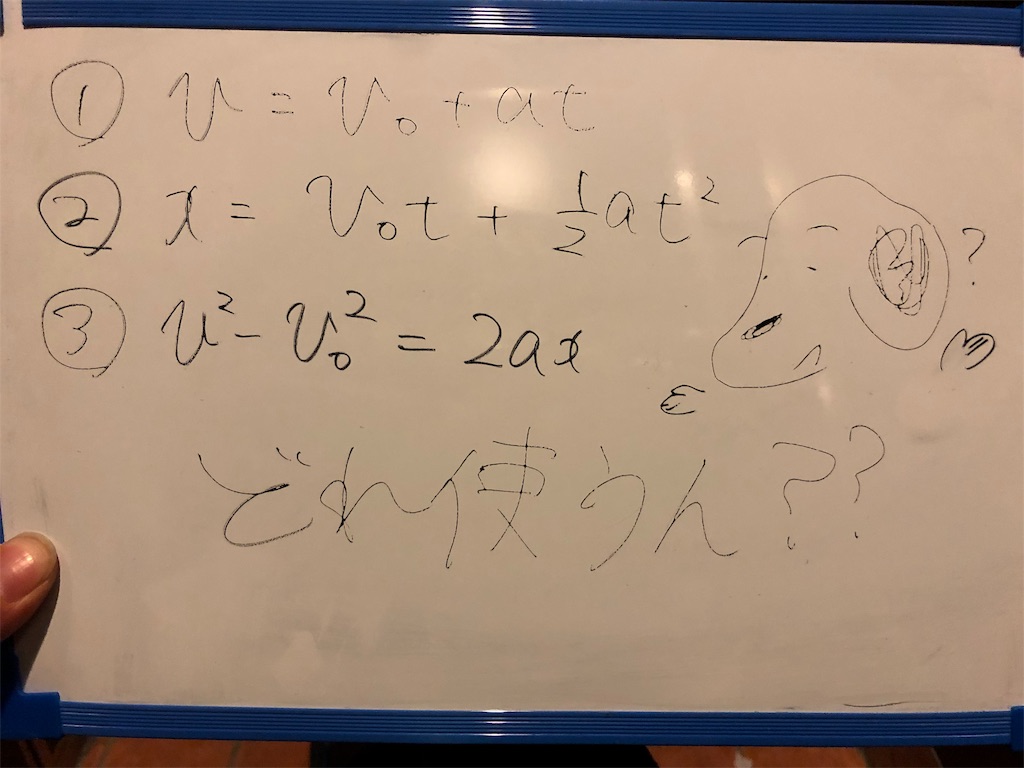 ① v = v₀ + at
② x = v₀t + ½at²
?
③ v² - v₀² = 2ax
どれ使うん??